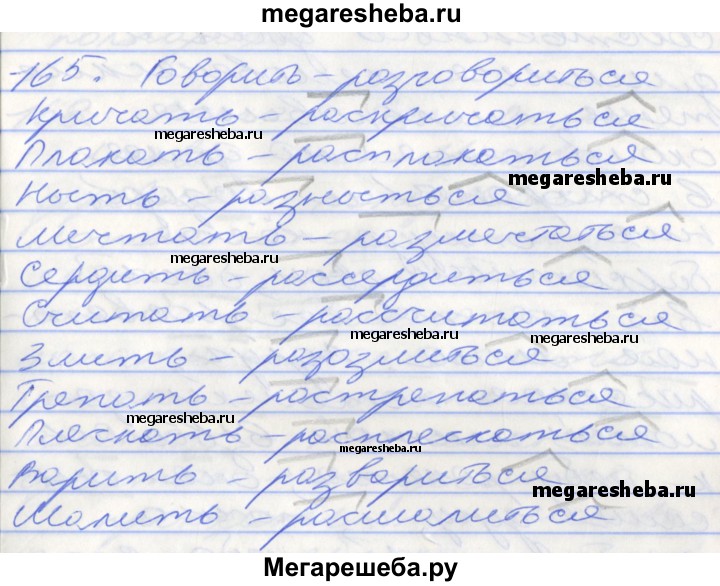 megaresheba.ru
165. Говорить – разговориться
Кричать – раскричаться
megaresheba.ru
Плакать – расплакаться
megaresheba.ru
Ныть – разныться
Мечтать – размечтаться
megaresheba.ru
Сердить – рассердиться
Считать – рассчитаться
megaresheba.ru
megaresheba.ru
Злить – разозлиться
Трепать – растрепаться
megaresheba.ru
Плескать – расплескаться
megaresheba.ru
Варить – развариться
megaresheba.ru
Молить – размолиться
Мегарешеба.ру